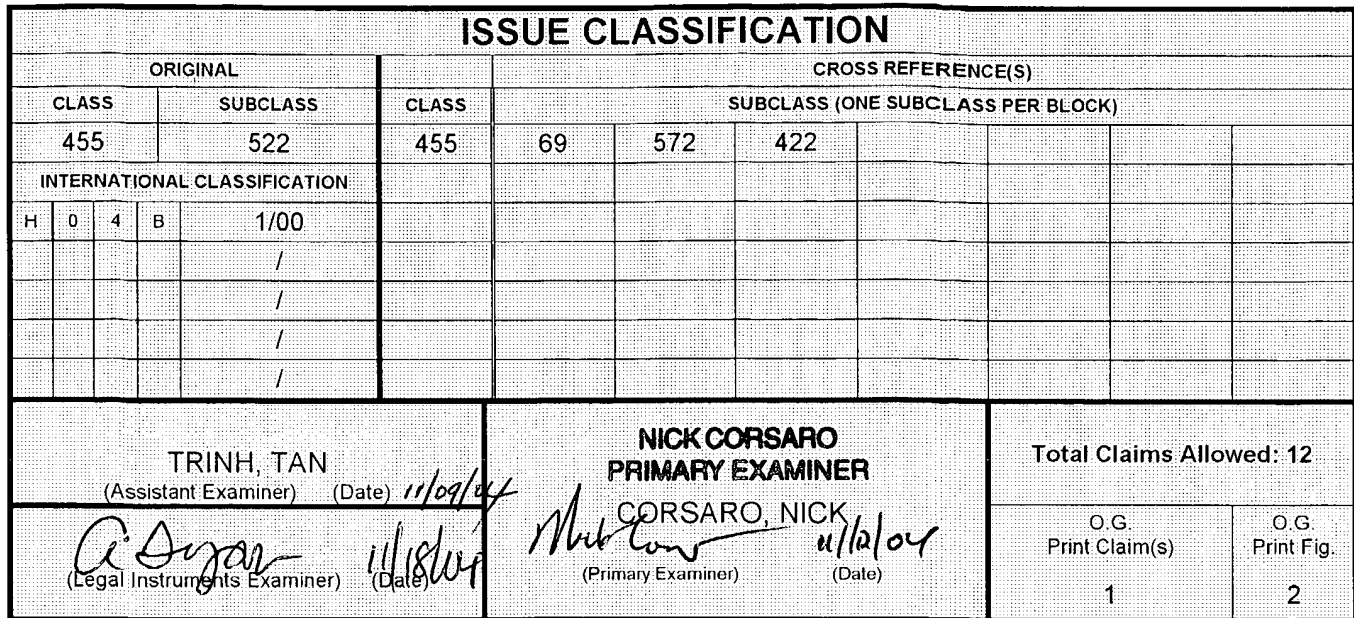 ISSUE CLASSIFICATION
ORIGINAL CROSS REFERENCE(S)
CLASS SUBCLASS CLASS SUBCLASS (ONE SUBCLASS PER BLOCK)
455 522 455 69 572 422
INTERNATIONAL CLASSIFICATION
H 0 4 B 1/00
/
/
/
/
TRINH, TAN
(Assistant Examiner) (Date) 11/09/04
(Legal Instruments Examiner) (Date) 11/18/04
NICK CORSARO
PRIMARY EXAMINER
CORSARO, NICK
11/12/04
(Primary Examiner) (Date)
Total Claims Allowed: 12
O.G. O.G.
Print Claim(s) Print Fig.
1 2